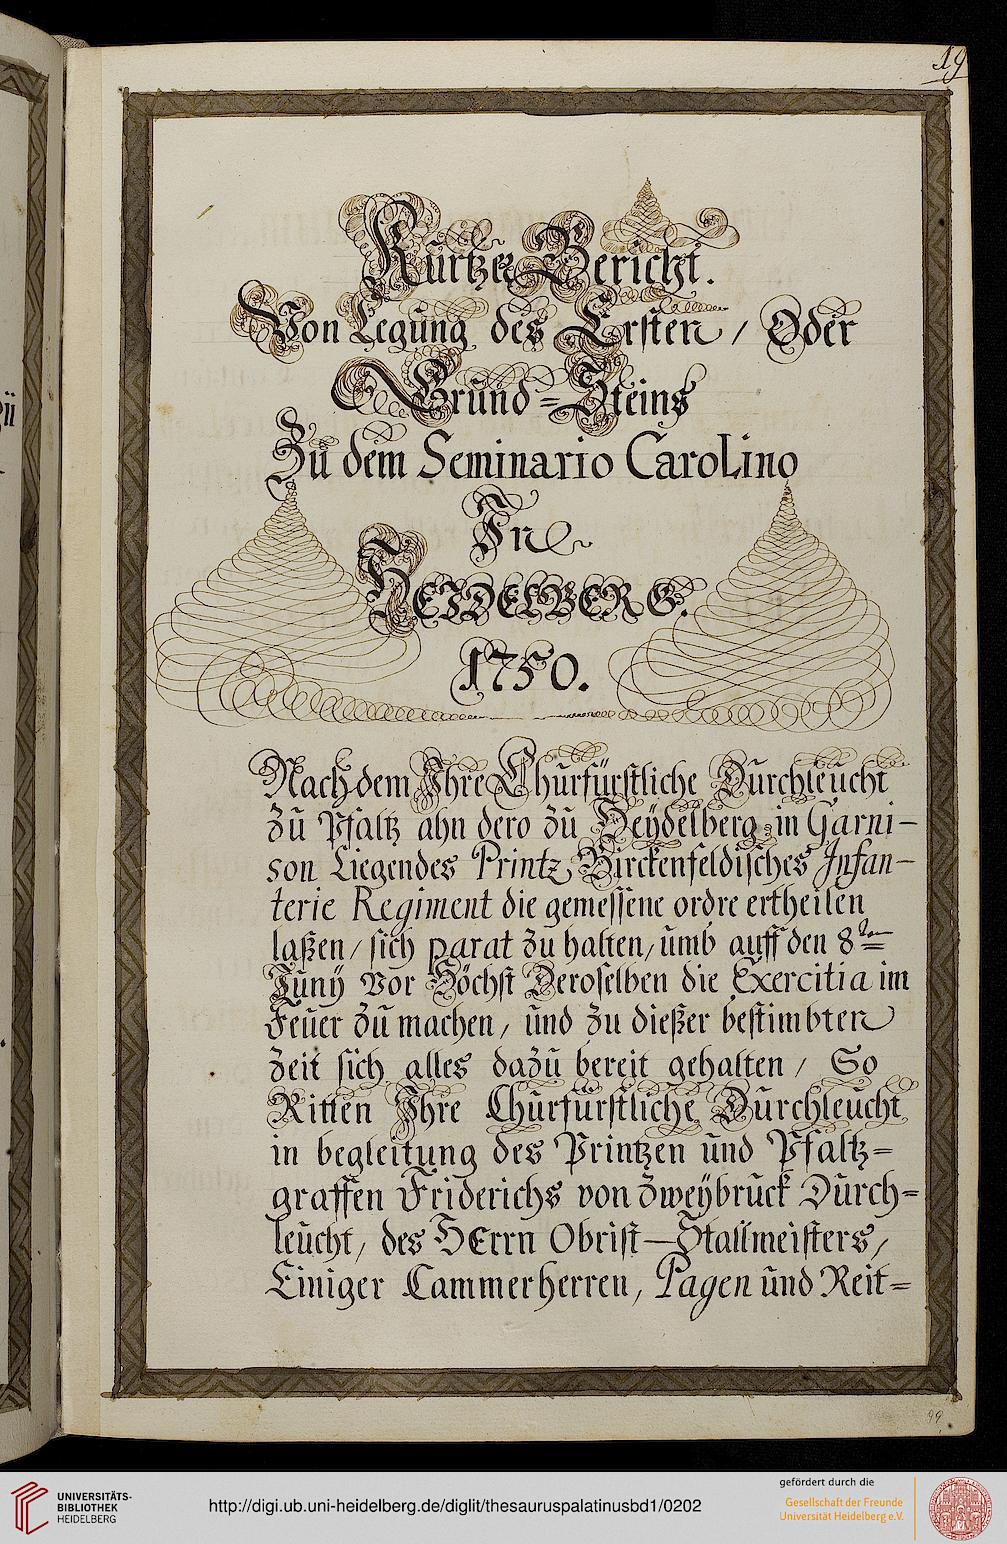 19
Kurtzer Bericht.
Von Legung des Ersten / Oder
Grund=Steins
Zu dem Seminario Carolino
In
HEIDELBERG.
1750.
Nach dem Ihre Churfürstliche Durchleucht
zu Pfaltz ahn dero zu Heÿdelberg in Garni-
son Liegendes Printz Birckenfeldisches Infan-
terie Regiment die gemessene ordre ertheilen
laßen / sich parat zu halten / umb auff den 8ten
Junÿ Vor Höchst Deroselben die Exercitia im
Feuer zu machen, und zu dießer bestimbten
Zeit sich alles dazu bereit gehalten / So
Ritten Ihre Churfürstliche Durchleucht
in begleitung des Printzen und Pfaltz=
graffen Friderichs von Zweÿbruck Durch=
leucht, des HErrn Obrist-Stallmeisters,
Einiger Cammerherren, Pagen und Reit=
99
UNIVERSITÄTS-
BIBLIOTHEK
HEIDELBERG
http://digi.ub.uni-heidelberg.de/diglit/thesauruspalatinusbd1/0202
gefördert durch die
Gesellschaft der Freunde
Universität Heidelberg e.V.